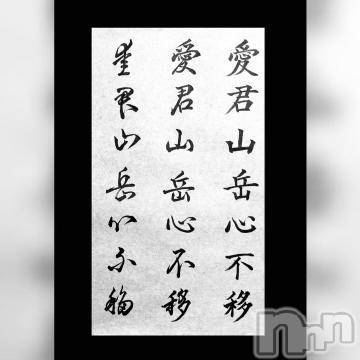 愛君山岳心不移
愛君山岳心不移
愛君山岳心不移
nnn